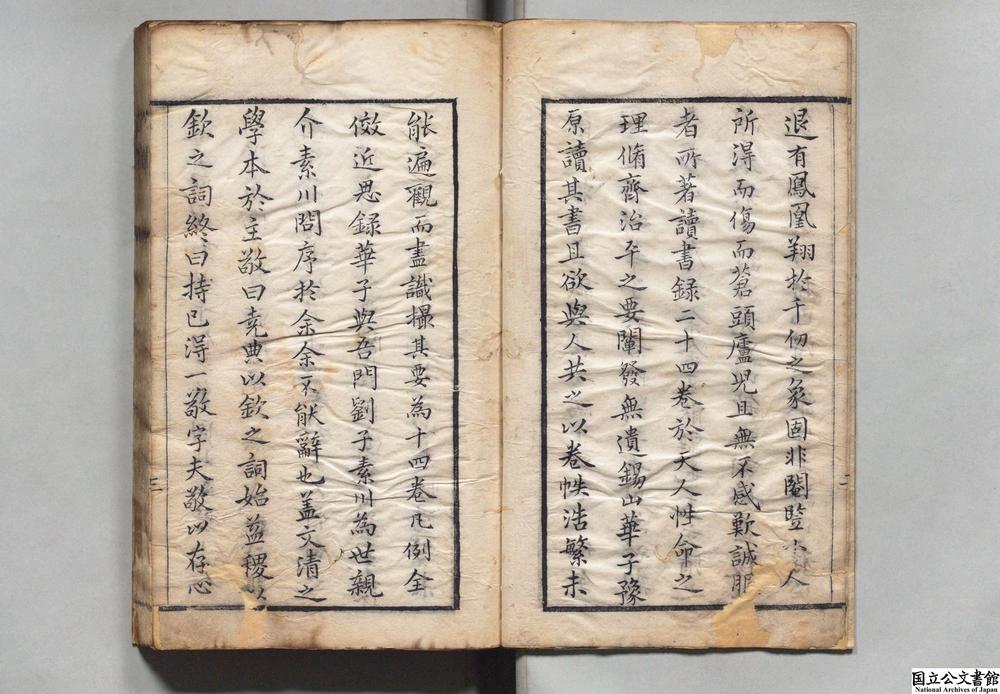 退有鳳凰翔於千仞之象固非閹豎小人
所得而傷而蒼頭廬児且無不感歎誠服
者所著讀書録二十四卷於天人性命之
理脩齊治平之要闡發無遺錫山華子豫
原讀其書且欲與人共之以卷帙浩繁未
二
能遍觀而盡識撮其要為十四卷凡例全
倣近思録華子與吾門劉子素川為世親
介素川問序於余余不能辭也盖文清之
學本於主敬曰堯典以欽之詞始益稷以
欽之詞終曰持已得一敬字夫敬以存心
三
国立公文書館
National Archives of Japan